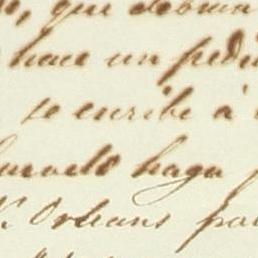 que debian
hace un pedi
se escribe à
haga
N. Orleans par